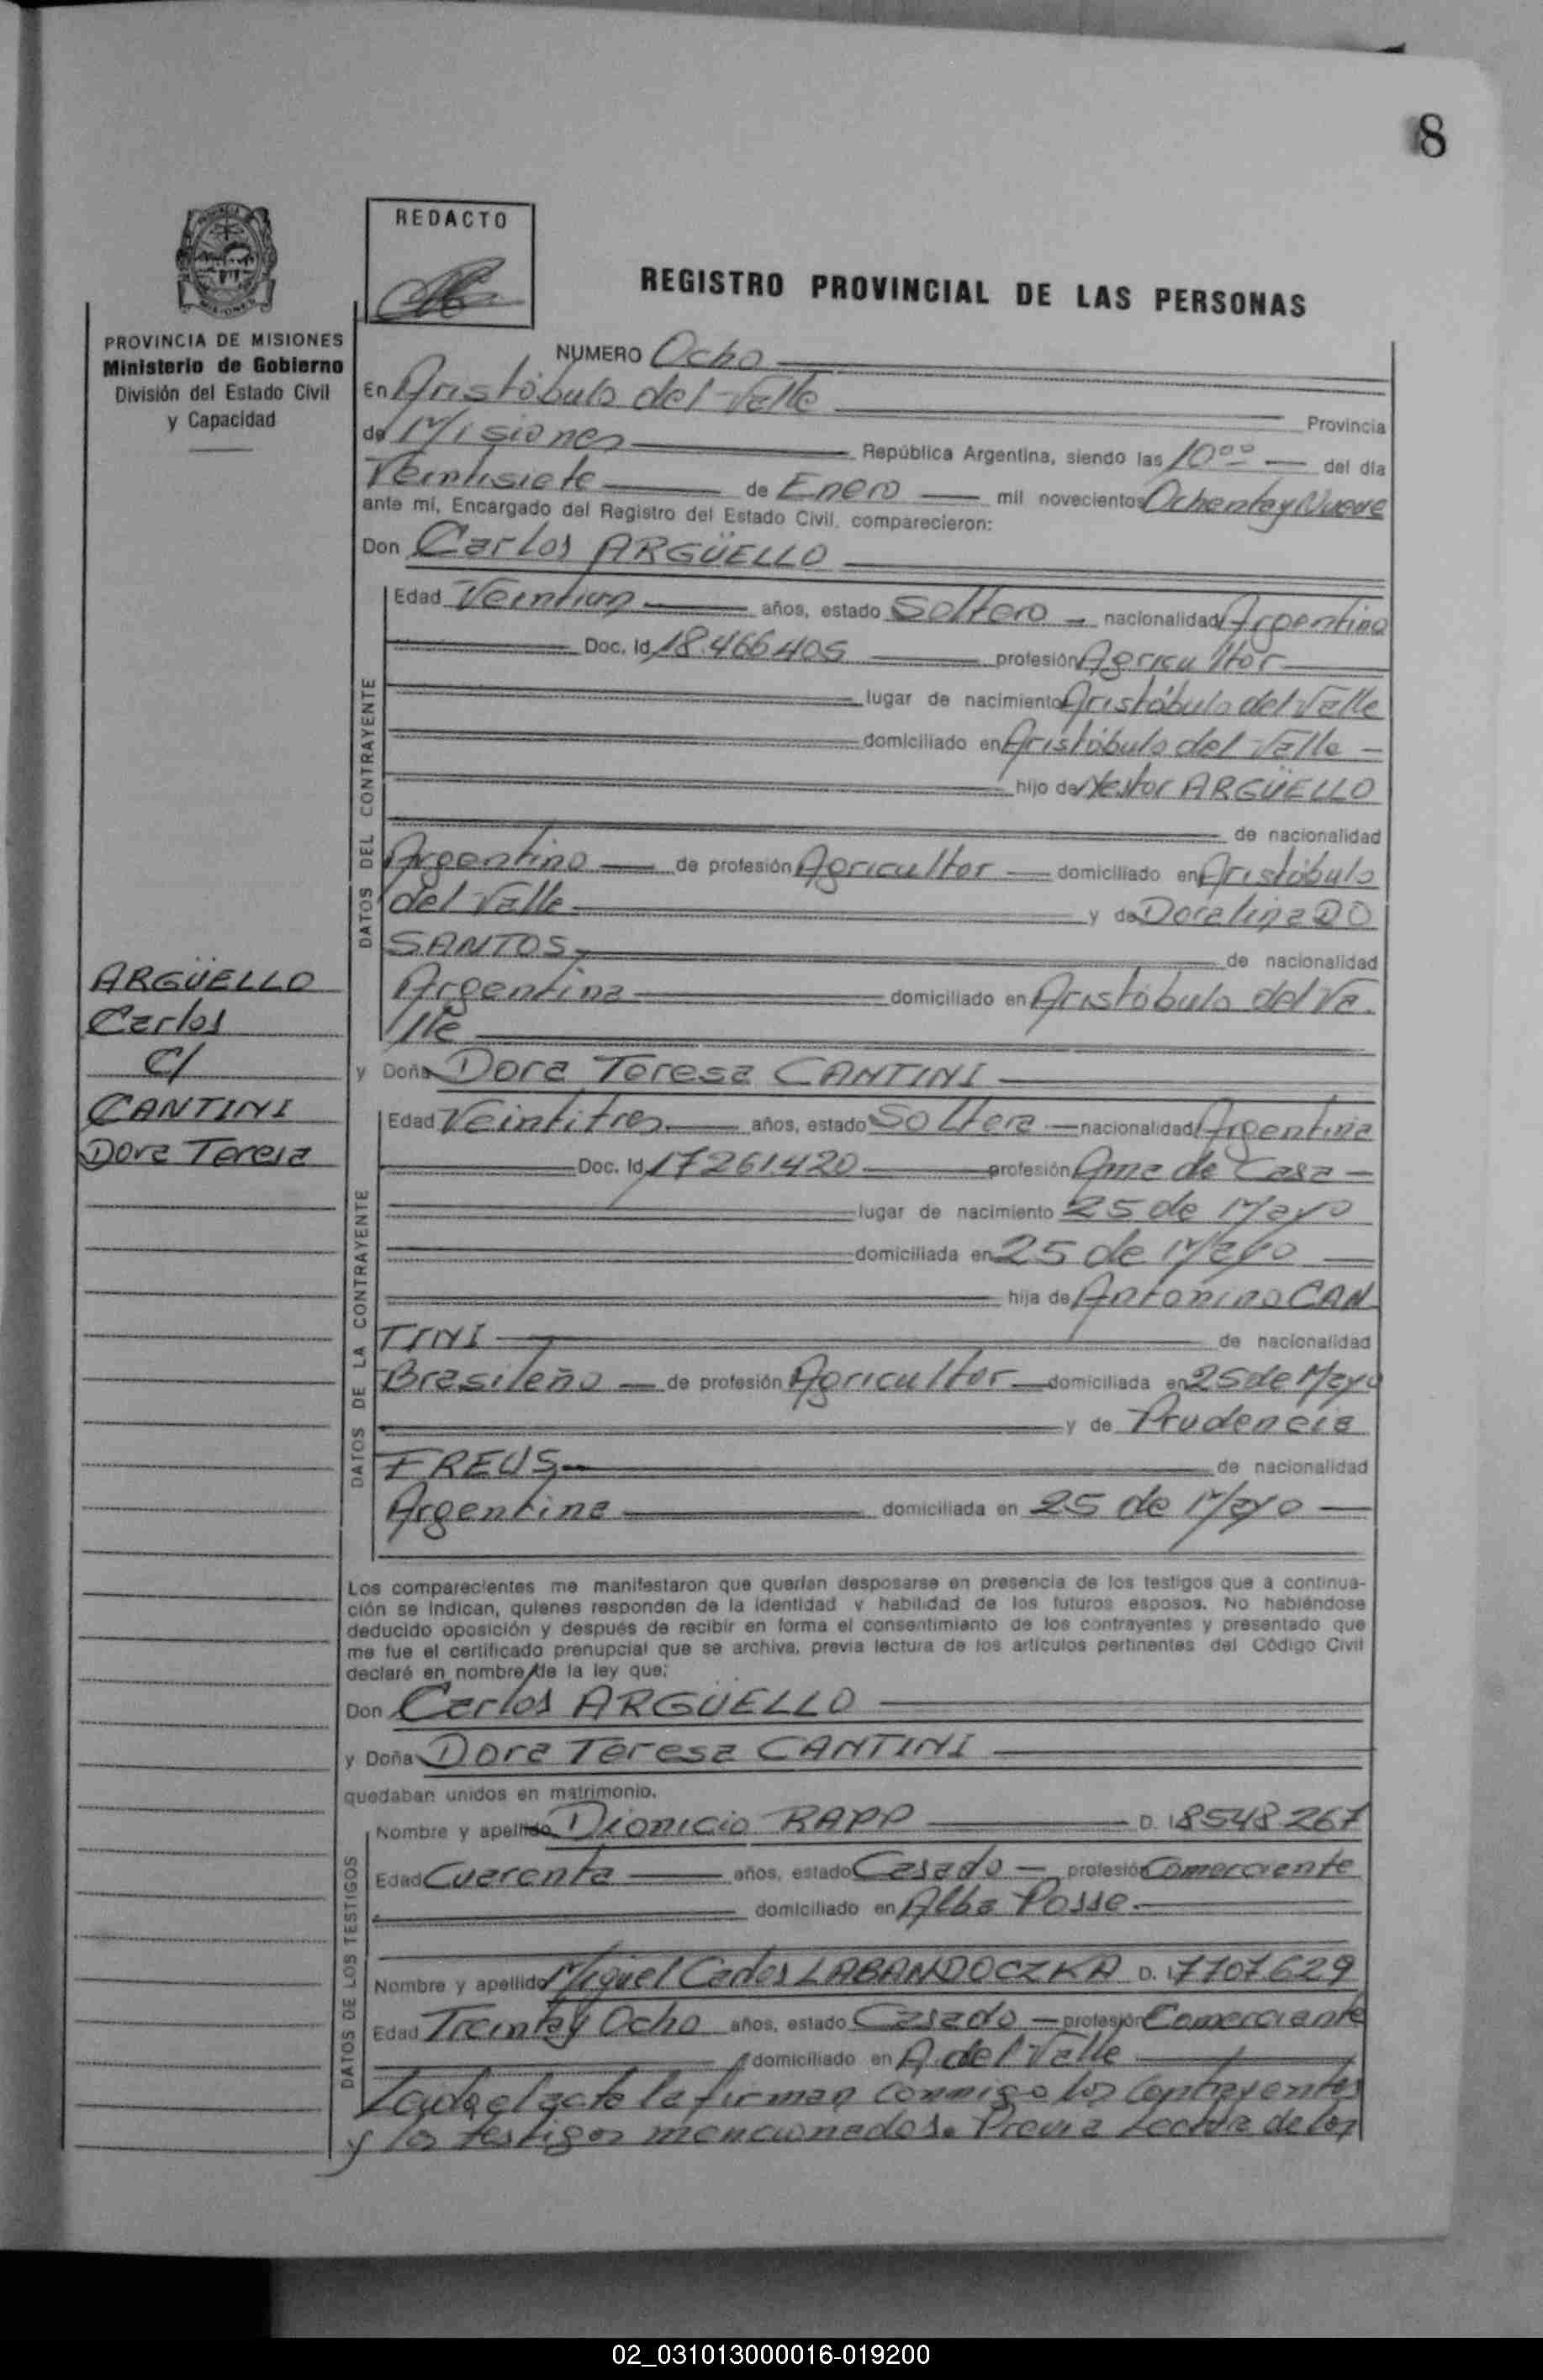 8
REDACTO
REGISTRO PROVINCIAL DE LAS PERSONAS
PROVINCIA DE MISIONES
Ministerio de Gobierno
División del Estado Civil
y Capacidad
NUMERO Ocho
En Aristóbulo del Valle Provincia
de Misiones República Argentina, siendo las 10ºº del día
Veintisiete de Enero mil novecientos Ochenta y Nueve
ante mí, Encargado del Registro del Estado Civil, comparecieron:
Don Carlos ARGÜELLO
DATOS DEL CONTRAYENTE
Edad Veintiun años, estado Soltero nacionalidad Argentino
Doc. Id. 18.466.405 profesión Agricultor
lugar de nacimiento Aristóbulo del Valle
domiciliado en Aristóbulo del Valle
hijo de Nestor ARGÜELLO
de nacionalidad
Argentino de profesión Agricultor domiciliado en Aristóbulo
del Valle y de Doralina DO
SANTOS de nacionalidad
Argentina domiciliado en Aristóbulo del Va-
lle
ARGÜELLO
Carlos
C/
CANTINI
Dora Teresa
y Doña Dora Teresa CANTINI
DATOS DE LA CONTRAYENTE
Edad Veintitres años, estado Soltera nacionalidad Argentina
Doc. Id. 17261.420 profesión Ama de Casa
lugar de nacimiento 25 de Mayo
domiciliada en 25 de Mayo
hija de Antonino CAN
TINI de nacionalidad
Brasileño de profesión Agricultor domiciliada en 25 de Mayo
y de Prudencia
FREUS de nacionalidad
Argentina domiciliada en 25 de Mayo
Los comparecientes me manifestaron que querían desposarse en presencia de los testigos que a continua-
ción se indican, quienes responden de la identidad y habilidad de los futuros esposos. No habiéndose
deducido oposición y después de recibir en forma el consentimiento de los contrayentes y presentado que
me fue el certificado prenupcial que se archiva, previa lectura de los artículos pertinentes del Código Civil
declaré en nombre de la ley que:
Don Carlos ARGÜELLO
y Doña Dora Teresa CANTINI
quedaban unidos en matrimonio.
DATOS DE LOS TESTIGOS
Nombre y apellido Dionicio RAPP D. I 8548267
Edad Cuarenta años, estado Casado profesión Comerciante
domiciliado en Alba Posse
Nombre y apellido Miguel Carlos LABANDOCZKA D. I 7707629
Edad Treinta y Ocho años, estado Casado profesión Comerciante
domiciliado en A. del Valle
el acta la firman conmigo los contrayentes
y los testigos mencionados. Previa Lectura de los
02_031013000016-019200